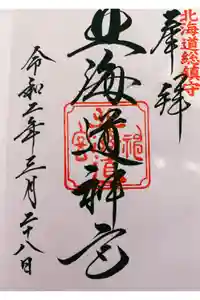 北海道総鎮守
奉拝
北海道神宮
令和二年三月二十八日